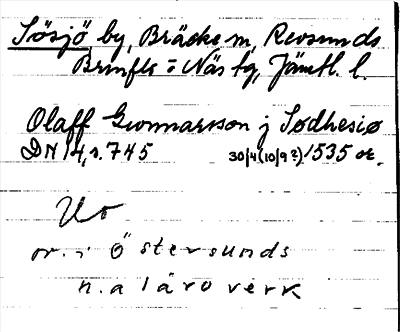 Sösjö by, Bräcke m, Revsunds
Brunflo o Näs tg, Jämtl. l.
Olaff Gwnnarsson j Sødhesiø
DN 14, s. 745 30/4 (10/9?) 1535 or.
Uo
or. i Östersunds
h. a läroverk